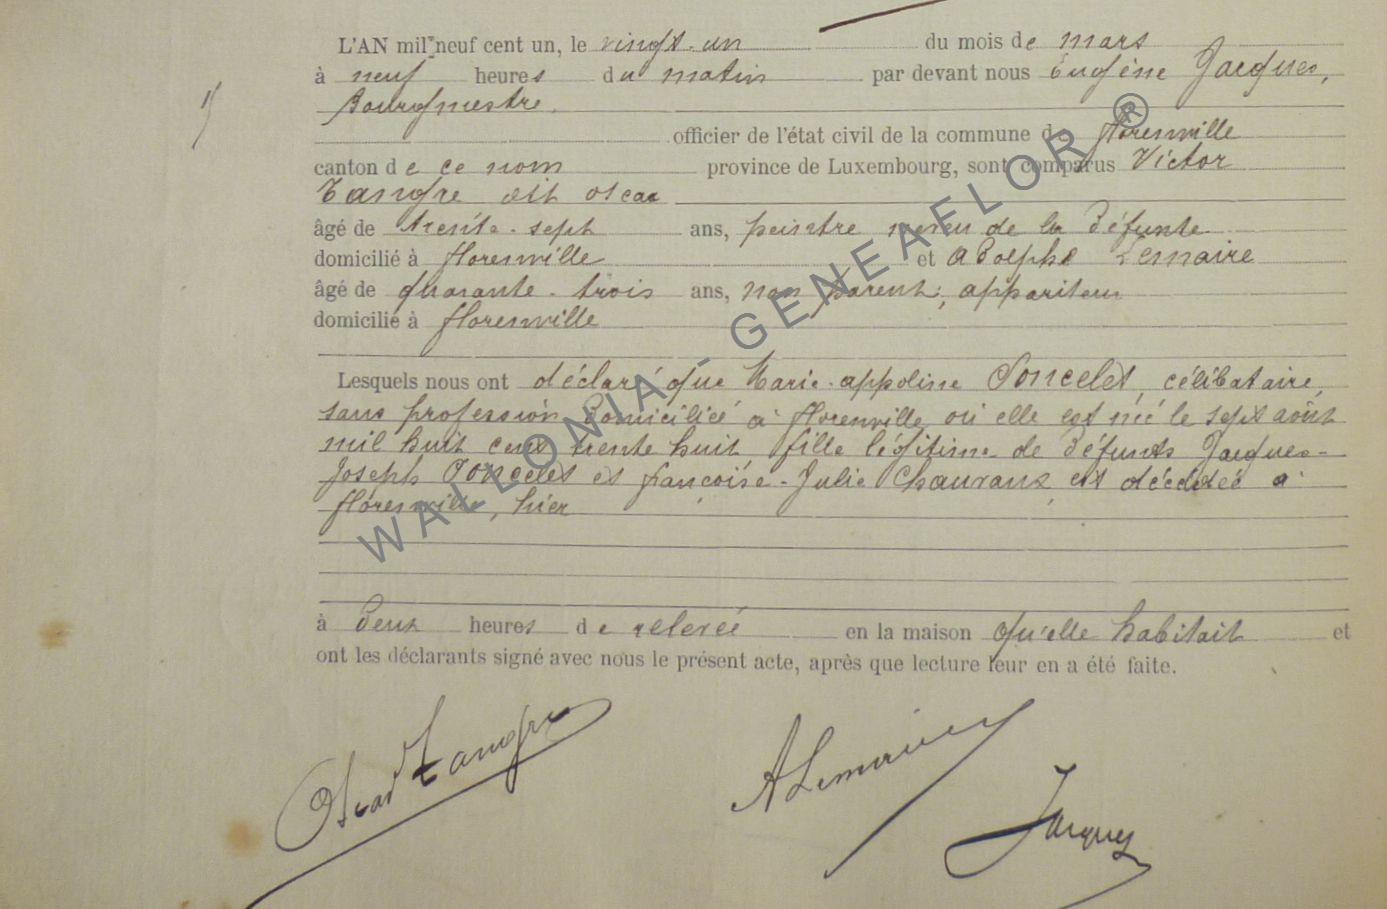 L'AN mil neuf cent un, le vingt-un du mois de mars
à neuf heures du matin par devant nous Eugène Jacques,
Bourgmestre,
officier de l'état civil de la commune de florenville
canton de ce nom province de Luxembourg, sont comparus Victor
Tangre dit oscar
âgé de trente-sept ans, peintre neveu de la défunte
domicilié à florenville et adolphe Lemaire
âgé de quarante-trois ans, non parent, appariteur
domicilié à florenville
Lesquels nous ont déclaré que Marie-appoline Poncelet, célibataire,
sans profession domiciliée à florenville où elle est née le sept août
mil huit cent trente huit fille légitime de défunts Jacques-
Joseph Poncelet et françoise-Julie Chauvaux est décédée à
florenville, hier
à deux heures de relevée en la maison qu'elle habitait et
ont les déclarants signé avec nous le présent acte, après que lecture leur en a été faite.
Oscar Tangre
A Lemaire
Jacques
WALLONIA-GENEAFLOR ®